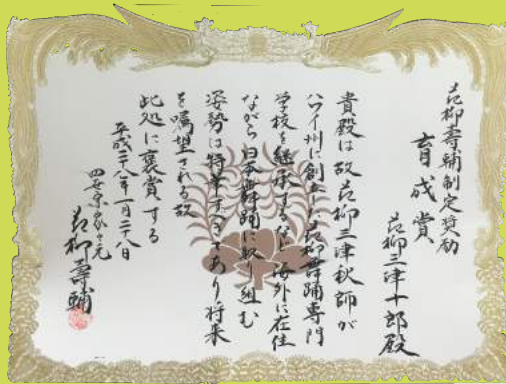 花柳壽輔制定奨励
育成賞
花柳三津十郎殿
貴殿は故花柳三津秋師が
ハワイ州に創立した花柳舞踊専門
学校を継承するなど海外に在住
ながら日本舞踊に取り組む
姿勢は特筆すべきであり将来
を嘱望される故
此処に褒賞する
平成二十八年一月二十八日
四世宗家家元
花柳壽輔